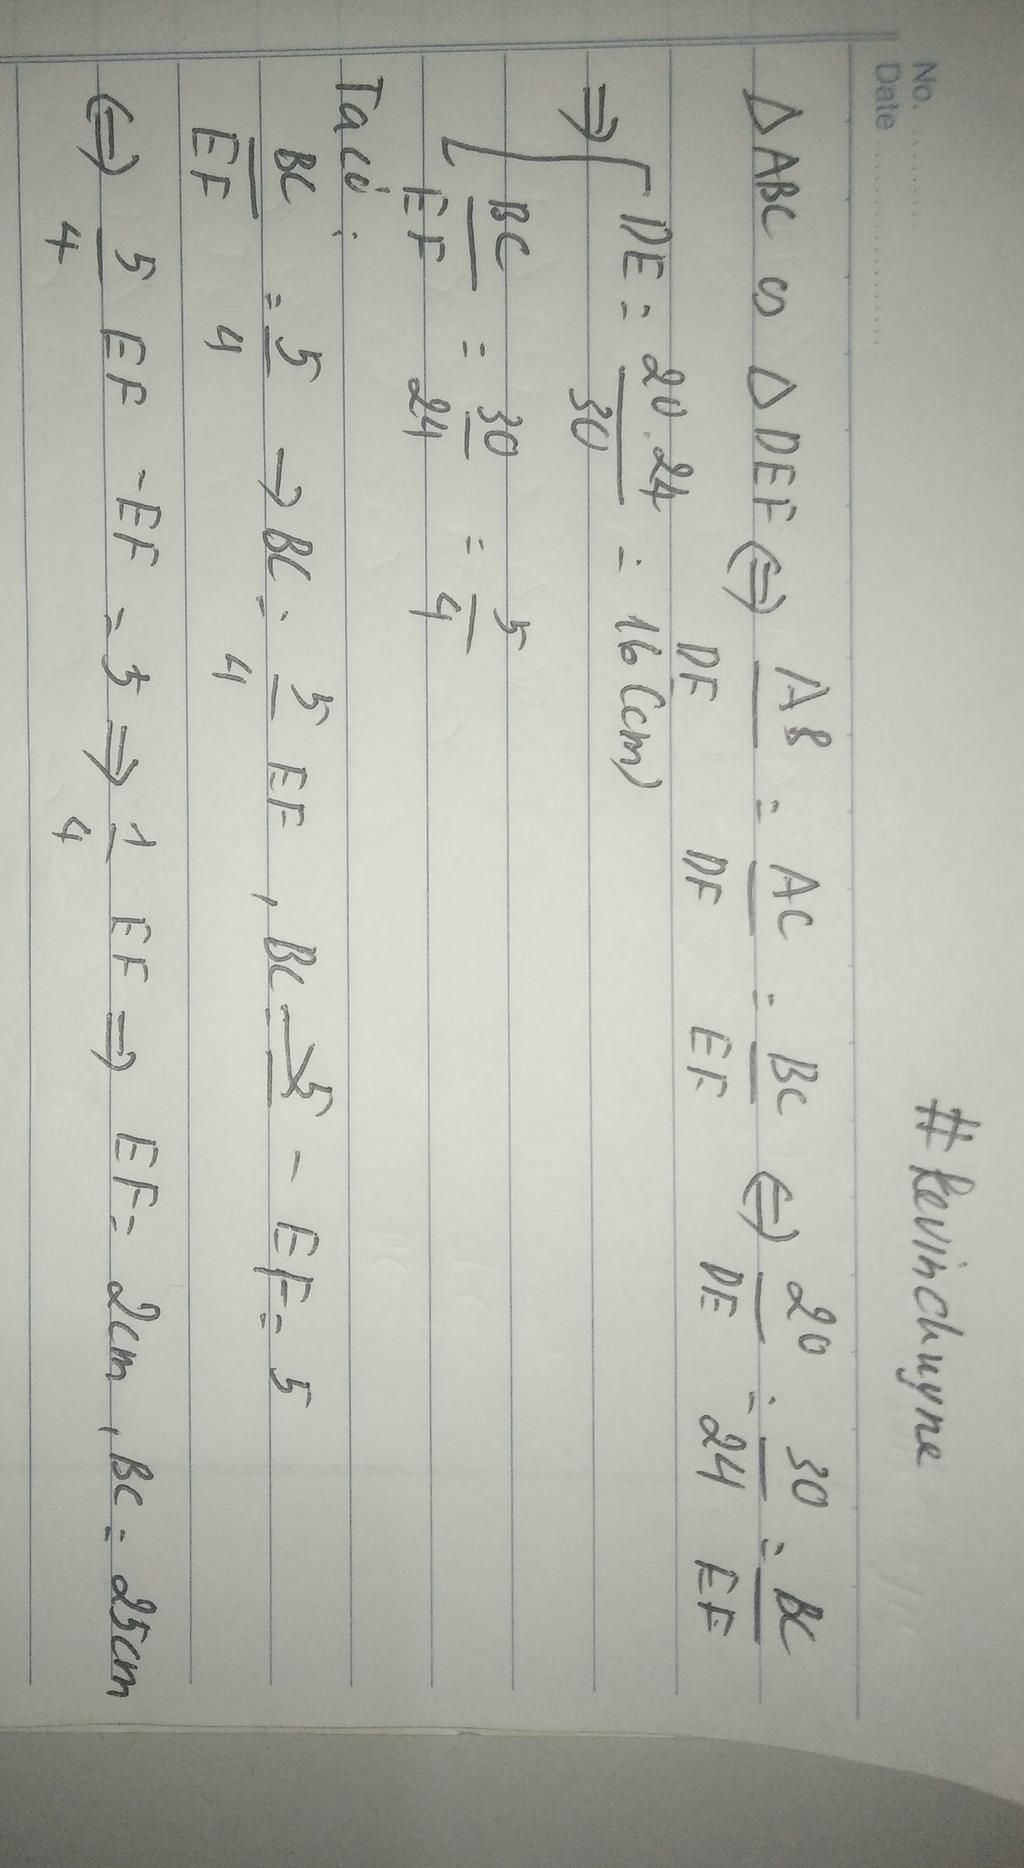 No. ........
Date ....................
#Kevinchuyne
△ABC ∽ △DEF ⟺ AB/DF = AC/DF = BC/EF ⟺ 20/DE = 30/24 = BC/EF
⟹ { DE = 20.24/30 = 16 (cm)
BC/EF = 30/24 = 5/4
Ta có :
BC/EF = 5/4 → BC = 5/4 EF , BC - EF = 5
⟺ 5/4 EF - EF = 5 ⟹ 1/4 EF ⟹ EF = 2cm , BC = 25cm